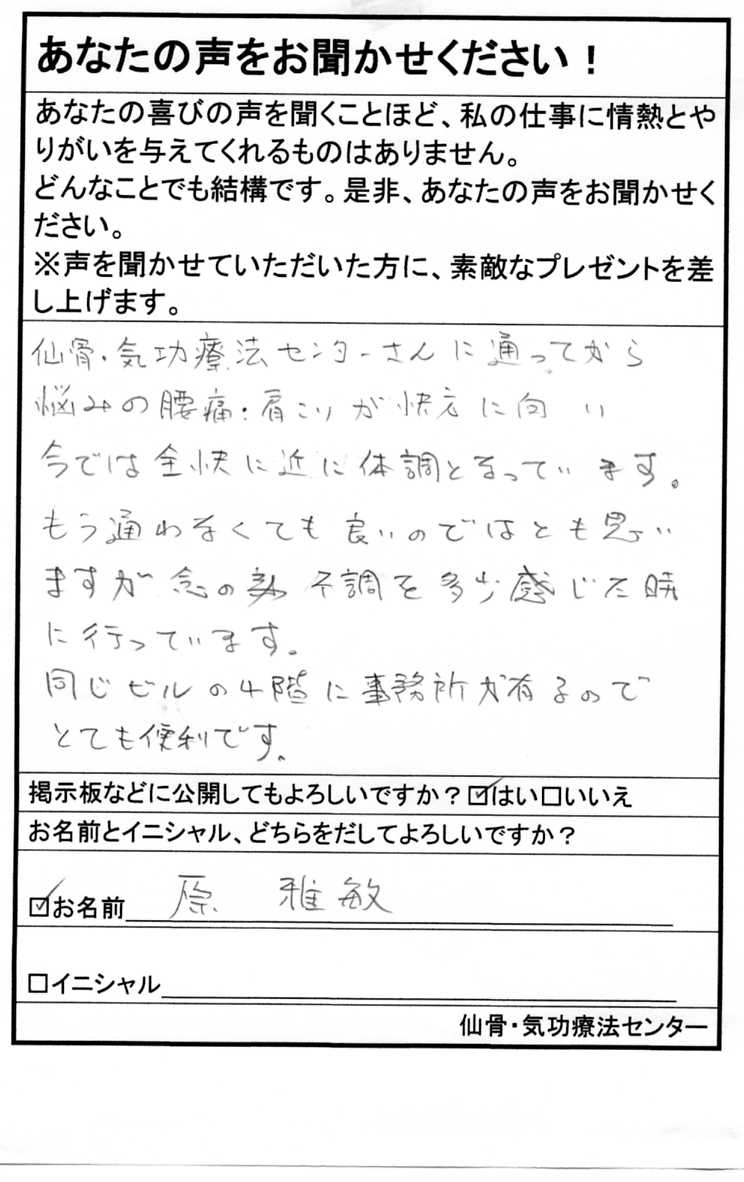 あなたの声をお聞かせください！
あなたの喜びの声を聞くことほど、私の仕事に情熱とや
りがいを与えてくれるものはありません。
どんなことでも結構です。是非、あなたの声をお聞かせく
ださい。
※声を聞かせていただいた方に、素敵なプレゼントを差
し上げます。
仙骨・気功療法センターさんに通ってから
悩みの腰痛・肩こりが快方に向い
今では全快に近に体調となっています。
もう通わなくても良いのではとも思い
ますが念の為不調を多少感じた時
に行っています。
同じビルの4階に事務所が有るので
とても便利です。
掲示板などに公開してもよろしいですか？☑はい□いいえ
お名前とイニシャル、どちらをだしてよろしいですか？
☑お名前 原 雅敏
□イニシャル
仙骨・気功療法センター